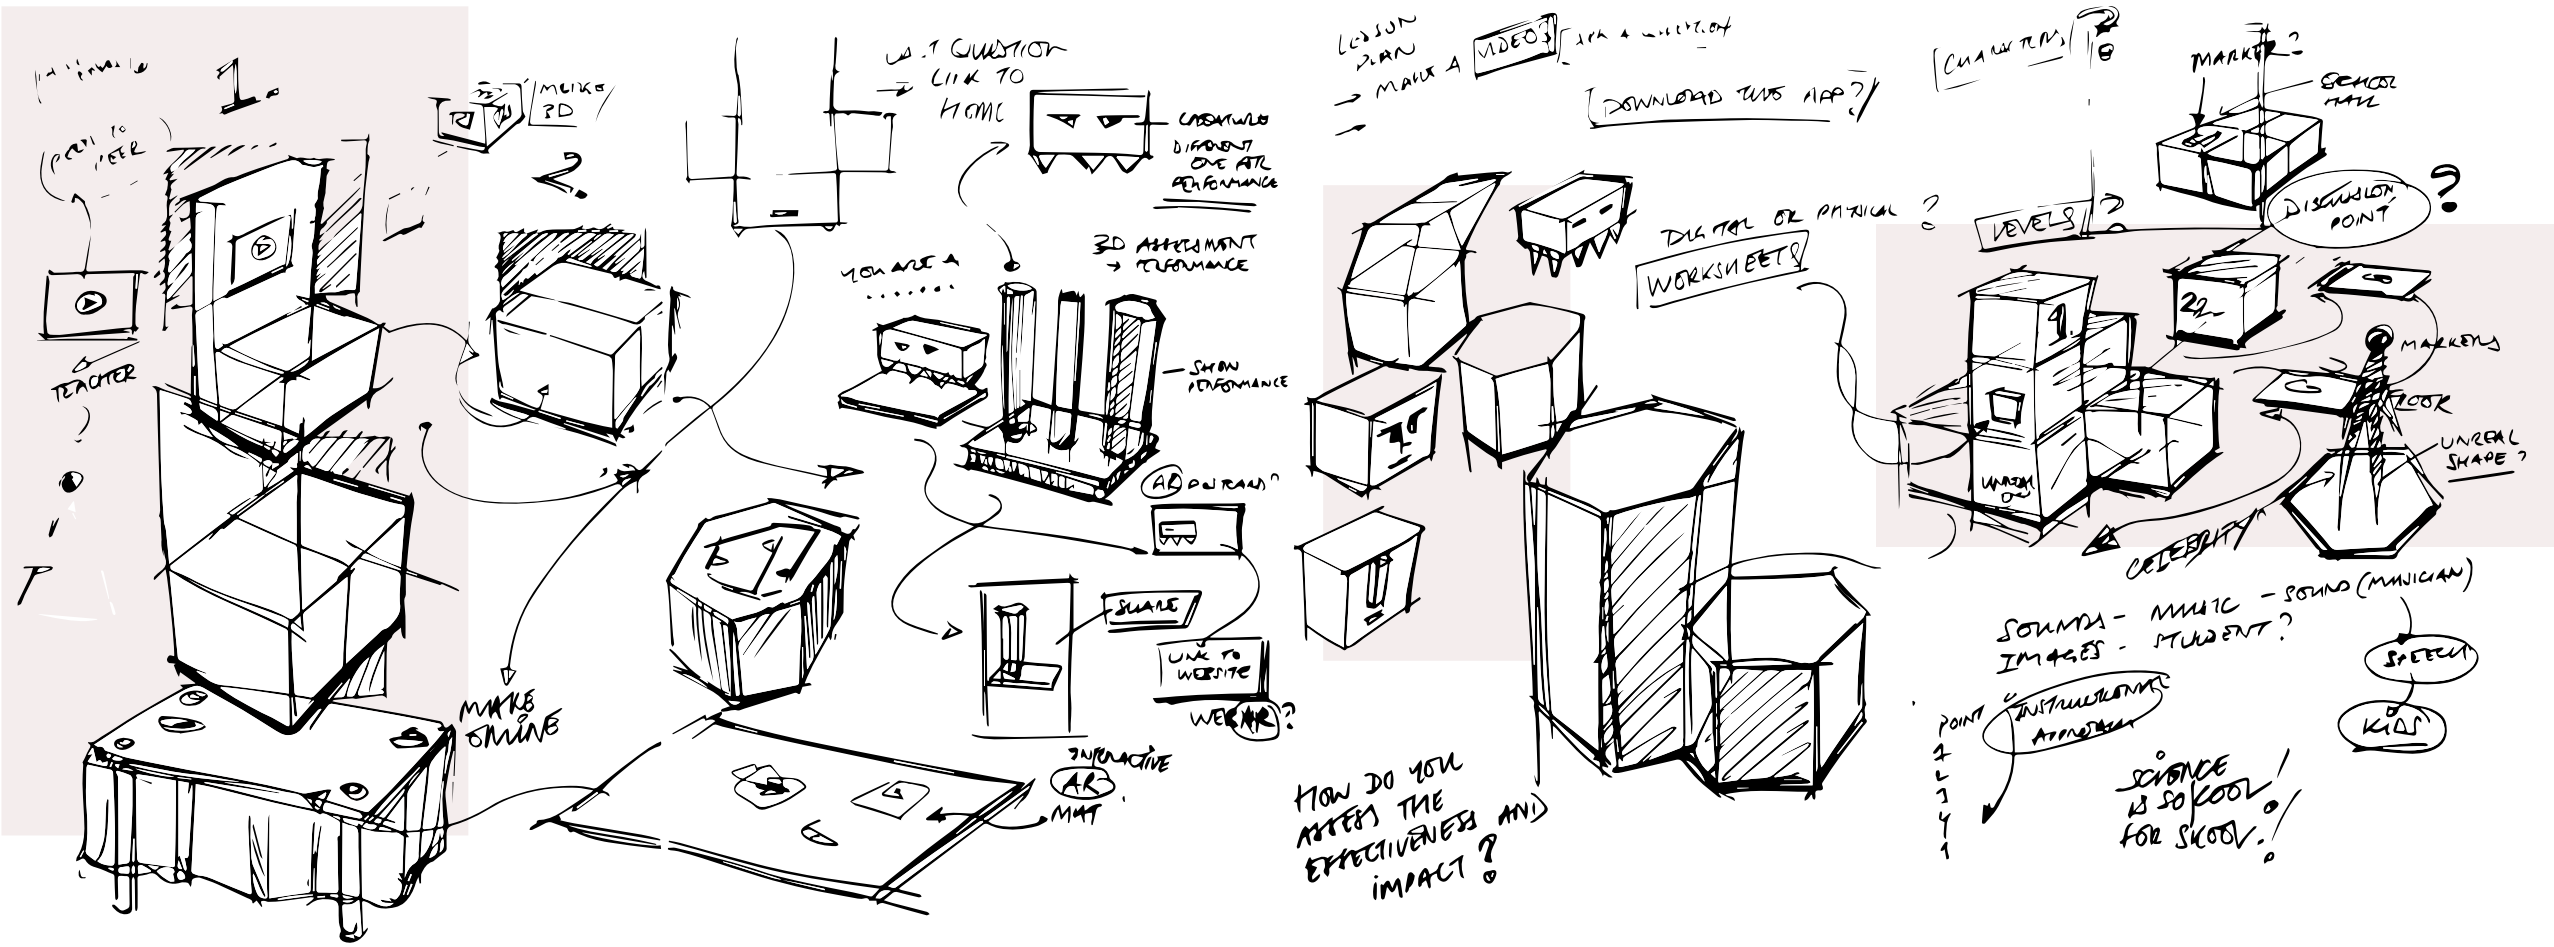 1.
PEER TO
PEER
TEACHER
?
3D
2.
QUESTION
LINK TO
HOME
CREATURE
DIFFERENT
ONE FOR
PERFORMANCE
YOU ARE A
.......
3D ASSESSMENT
PERFORMANCE
SHOW
PERFORMANCE
AR
SHARE
LINK TO
WEBSITE
WEBAR?
MAKE
ONLINE
INTERACTIVE
AR
MAT
LESSON
PLAN
MAKE A VIDEO?
DOWNLOAD THE APP?
DIGITAL OR PHYSICAL ?
WORKSHEETS
HOW DO YOU
ASSESS THE
EFFECTIVENESS AND
IMPACT?
CHARACTERS ?
MARKER?
SCHOOL
HALL
DISCUSSION
POINT
?
LEVELS ?
1.
22
MARKERS
LOOK
UNREAL
SHAPE?
CELEBRITY
SOUNDS - MUSIC - SOUND (MUSICIAN)
IMAGES - STUDENT?
SPEECH
KIDS
POINT
INSTRUCTIONAL
APPROACH
1
2
3
4
SCIENCE
IS SO KOOL!
FOR SKOOL.!